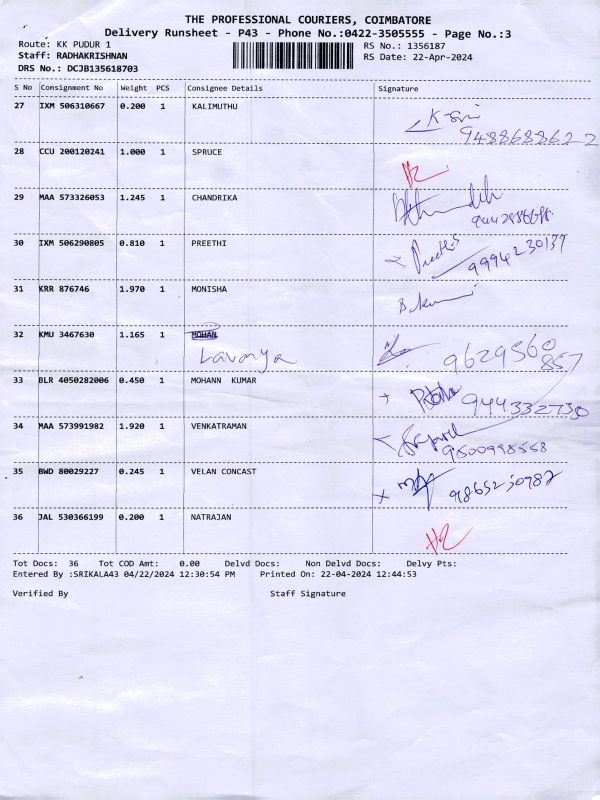 THE PROFESSIONAL COURIERS, COIMBATORE
Delivery Runsheet - P43 - Phone No.:0422-3505555 - Page No.:3
Route: KK PUDUR 1 RS No.: 1356187
Staff: RADHAKRISHNAN RS Date: 22-Apr-2024
DRS No.: DCJB135618703
S No Consignment No Weight PCS Consignee Details Signature
27 IXM 506310667 0.200 1 KALIMUTHU
9488686622
28 CCU 200120241 1.000 1 SPRUCE
29 MAA 573326053 1.245 1 CHANDRIKA
30 IXM 506290805 0.810 1 PREETHI Preethi
9994230137
31 KRR 876746 1.970 1 MONISHA
32 KMU 3467630 1.165 1 MOHAN
Lavanya 9629560
857
33 BLR 4050282006 0.450 1 MOHANN KUMAR
944332730
34 MAA 573991982 1.920 1 VENKATRAMAN
9500998558
35 BWD 80029227 0.245 1 VELAN CONCAST
36 JAL 530366199 0.200 1 NATRAJAN
Tot Docs: 36 Tot COD Amt: 0.00 Delvd Docs: Non Delvd Docs: Delvy Pts:
Entered By :SRIKALA43 04/22/2024 12:30:54 PM Printed On: 22-04-2024 12:44:53
Verified By Staff Signature